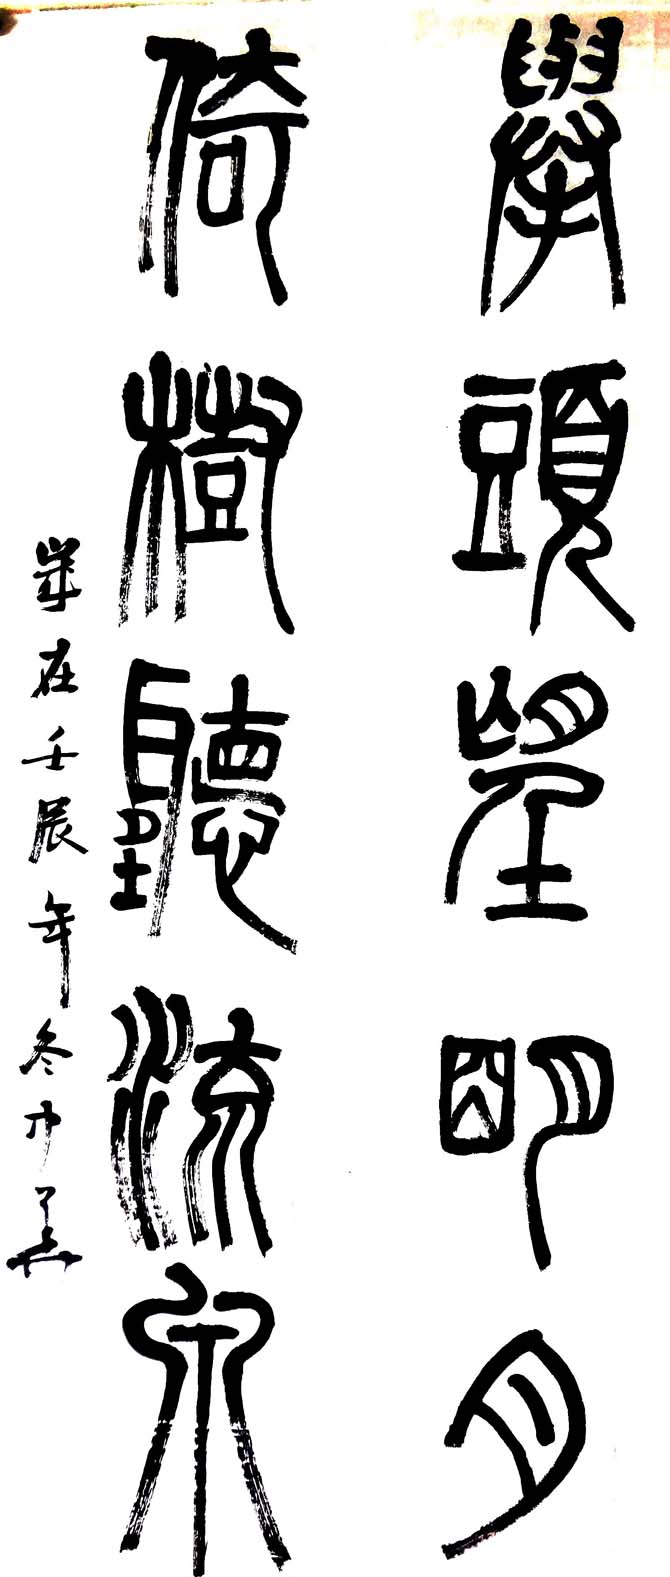 舉頭望明月
倚樹聽流泉
歲在壬辰年冬中